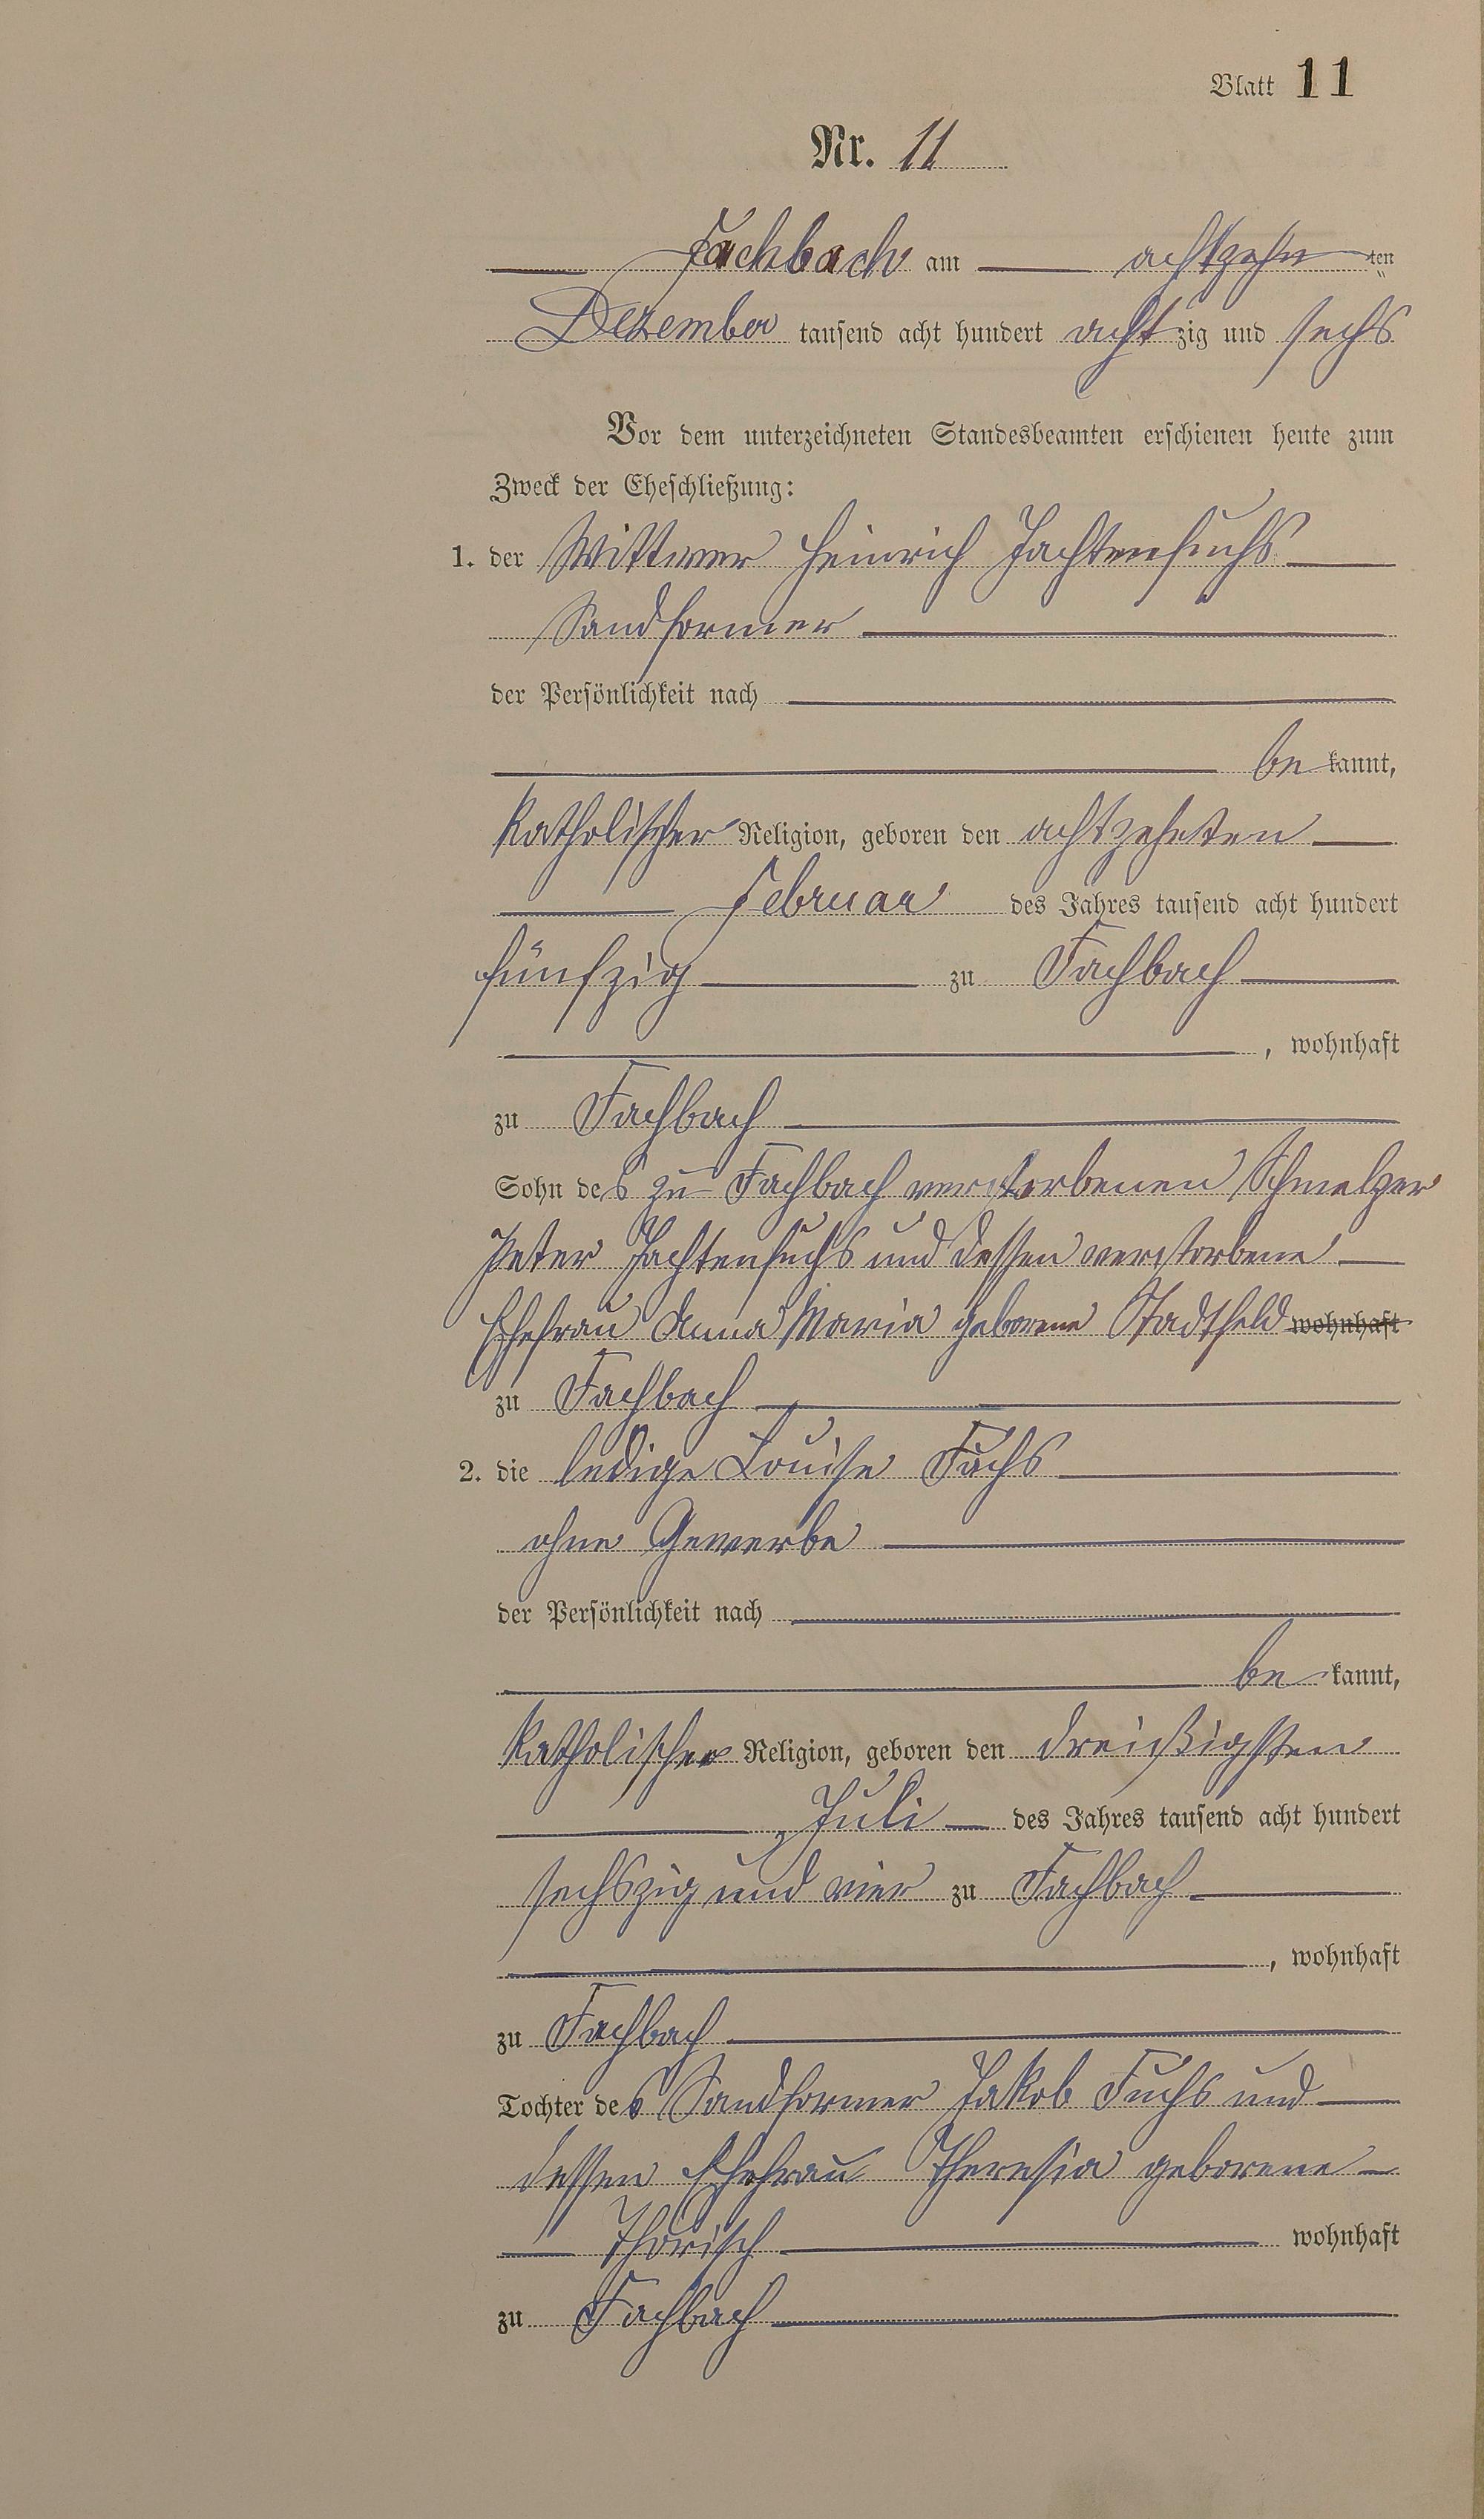 Blatt 11
Nr. 11
Fachbach am achtzehn ten
Dezember tausend acht hundert achtzig und sechs
Vor dem unterzeichneten Standesbeamten erschienen heute zum
Zweck der Eheschließung:
1. der Wittwer Heinrich Jachtenfuchs
Sandformer
der Persönlichkeit nach
be kannt,
katholischer Religion, geboren den achtzehnten
Februar des Jahres tausend acht hundert
fünfzig zu Fachbach
, wohnhaft
zu Fachbach
Sohn des zu Fachbach verstorbenen Schmelzer
Peter Jachtenfuchs und dessen verstorbene
Ehefrau Anna Maria geborene Stadtfeld wohnhaft
zu Fachbach
2. die ledige Louise Fuchs
ohne Gewerbe
der Persönlichkeit nach
be kannt,
katholischer Religion, geboren den dreißigsten
Juli des Jahres tausend acht hundert
sechszig und vier zu Fachbach
, wohnhaft
zu Fachbach
Tochter des Sandformer Jakob Fuchs und
dessen Ehefrau Theresia geborene
Thörisch wohnhaft
zu Fachbach